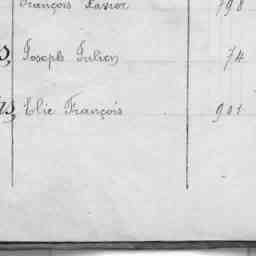 François Xavier 798
s, Joseph Julien 74
as, Elie François 901